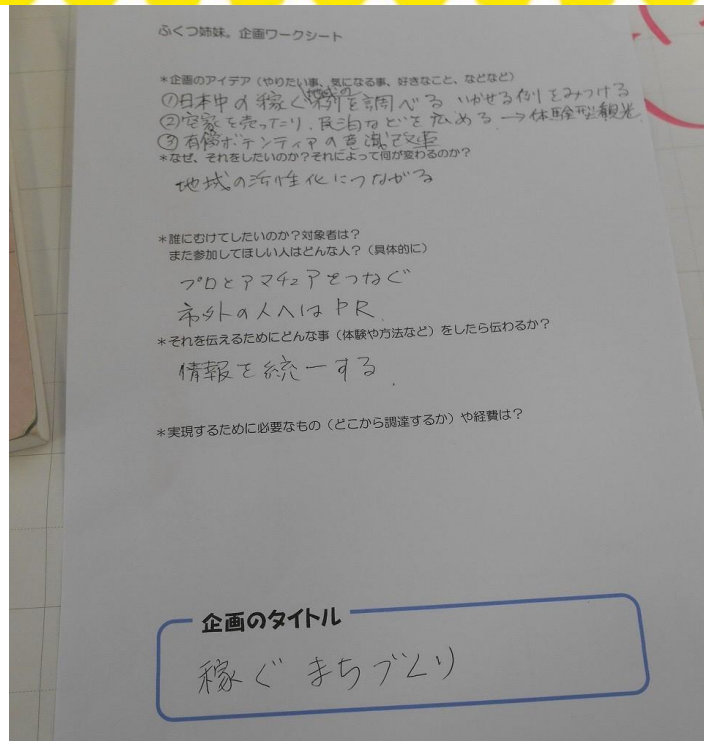 ふくつ姉妹。企画ワークシート
*企画のアイデア（やりたい事、気になる事、好きなこと、などなど）
①日本中の稼ぐ地域の例を調べる いかせる例をみつける
②空家を売ったり、民泊などを広める→体験型観光
③有償ボランティアの意識改革
*なぜ、それをしたいのか？それによって何が変わるのか？
地域の活性化につながる
*誰にむけてしたいのか？対象者は？
また参加してほしい人はどんな人？（具体的に）
プロとアマチュアをつなぐ
市外の人へはPR
*それを伝えるためにどんな事（体験や方法など）をしたら伝わるか？
情報を統一する
*実現するために必要なもの（どこから調達するか）や経費は？
企画のタイトル
稼ぐ まちづくり